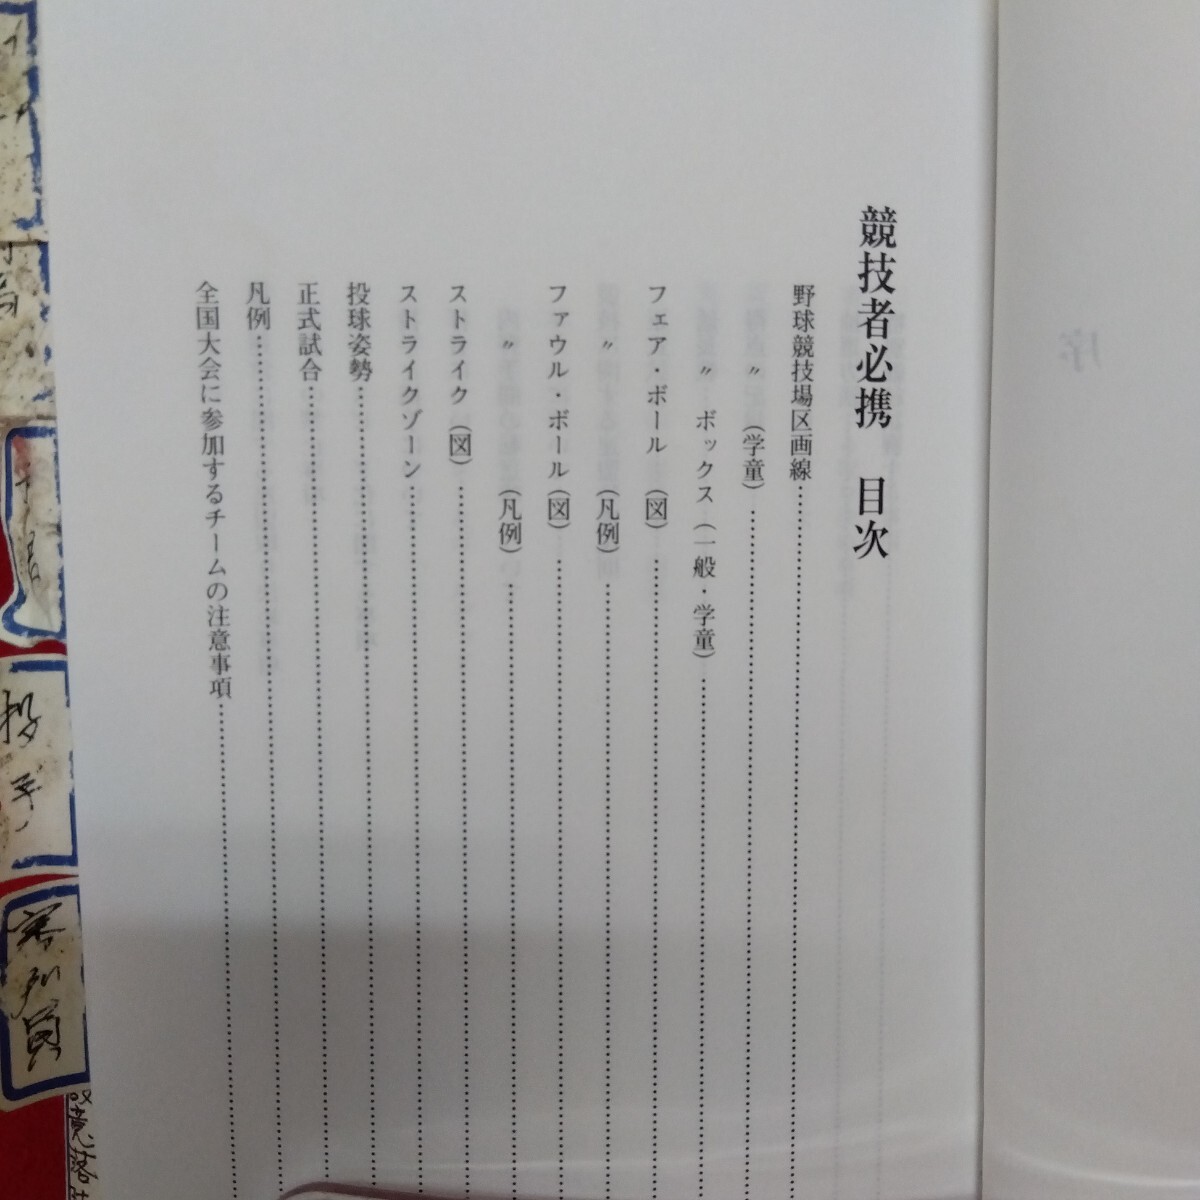 競技者必携　目次
野球競技場区画線
〃（学童）
〃ボックス（一般・学童）
フェア・ボール（図）
〃（凡例）
ファウル・ボール（図）
〃（凡例）
ストライク（図）
ストライクゾーン
投球姿勢
正式試合
凡例
全国大会に参加するチームの注意事項
序
投手
審判員